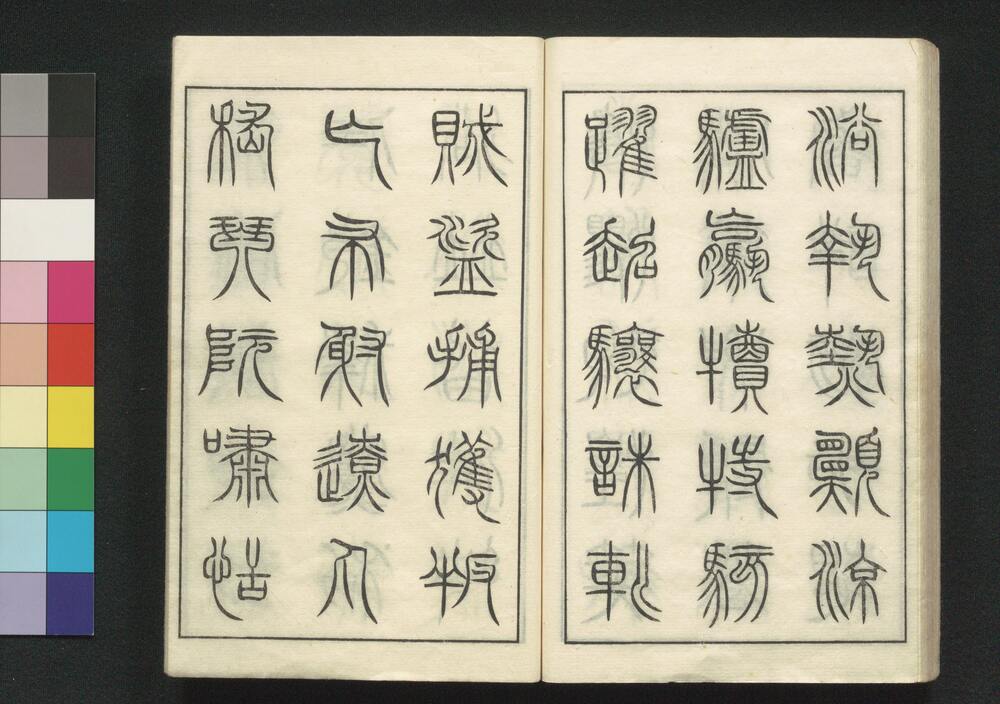 浴執熱願涼
驢騾犢特駭
躍超驤誅斬
賊盜捕獲叛
亡布射遼丸
嵇琴阮嘯恬